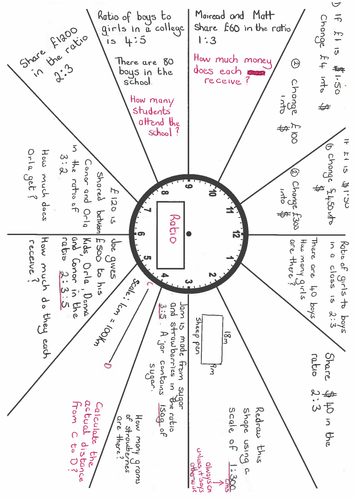 Share £1200
in the ratio
2:3
Ratio of boys to
girls in a college
is 4:5
There are 80
boys in the
school.
How many
students
attend the
school?
Mairead and Matt
Share £60 in the ratio
1:3
How much money
does each
receive?
1) IF £1 is $1.50
Change £4 into $
② Change £100
into $
If £1 is $
① Change £450 into
$
② Change £300
into $
Ratio of girls to boys
in a class is 2:3
There are 40 boys
How many girls
are there?
Share $40 in the
ratio 2:3
18m
9m
sheep pen
Redraw this
shape using a
scale of 1:300
always in
cms
unless it says
otherwise
Jam is made from sugar
and strawberries in the ratio
3:5. A jar contains 150g of
sugar.
How many grams
of strawberries
are there?
Scale: 1cm = 100km
C
D
Calculate the
actual distance
from C to D?
Joe gives
£500 to his
kids, Orla, Donna
and Conor in the
ratio 2:3:5
How much do they each
receive?
£120 is
Shared between
Conor and Orla
in the ratio of
3:2
How much does
Orla get?
Ratio
12
1
2
3
4
5
6
7
8
9
10
11